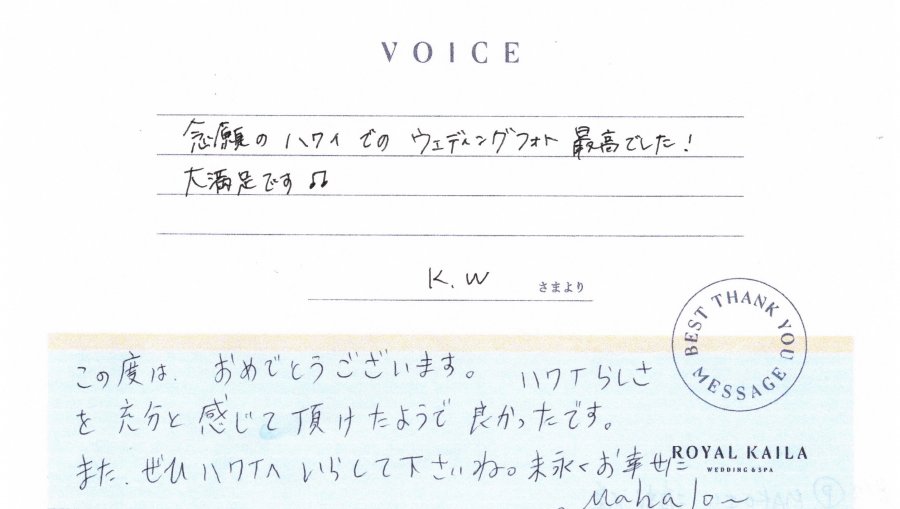 VOICE
念願の ハワイ での ウェディングフォト 最高でした!
大満足です♫
K.W さまより
BEST THANK YOU MESSAGE
この度は、おめでとうございます。 ハワイらしさ
を 充分と 感じて 頂けたようで 良かったです。
また、ぜひ ハワイへ いらして下さいね。末永くお幸せに
ROYAL KAILA
WEDDING & SPA
Mahalo~